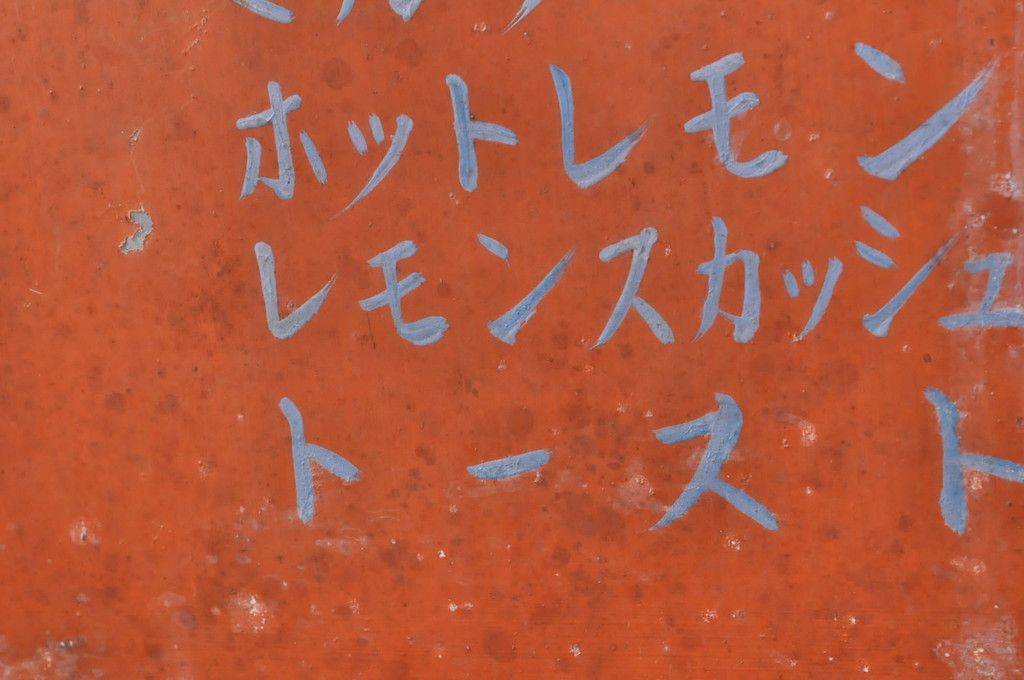 ホットレモン
レモンスカッシュ
トースト